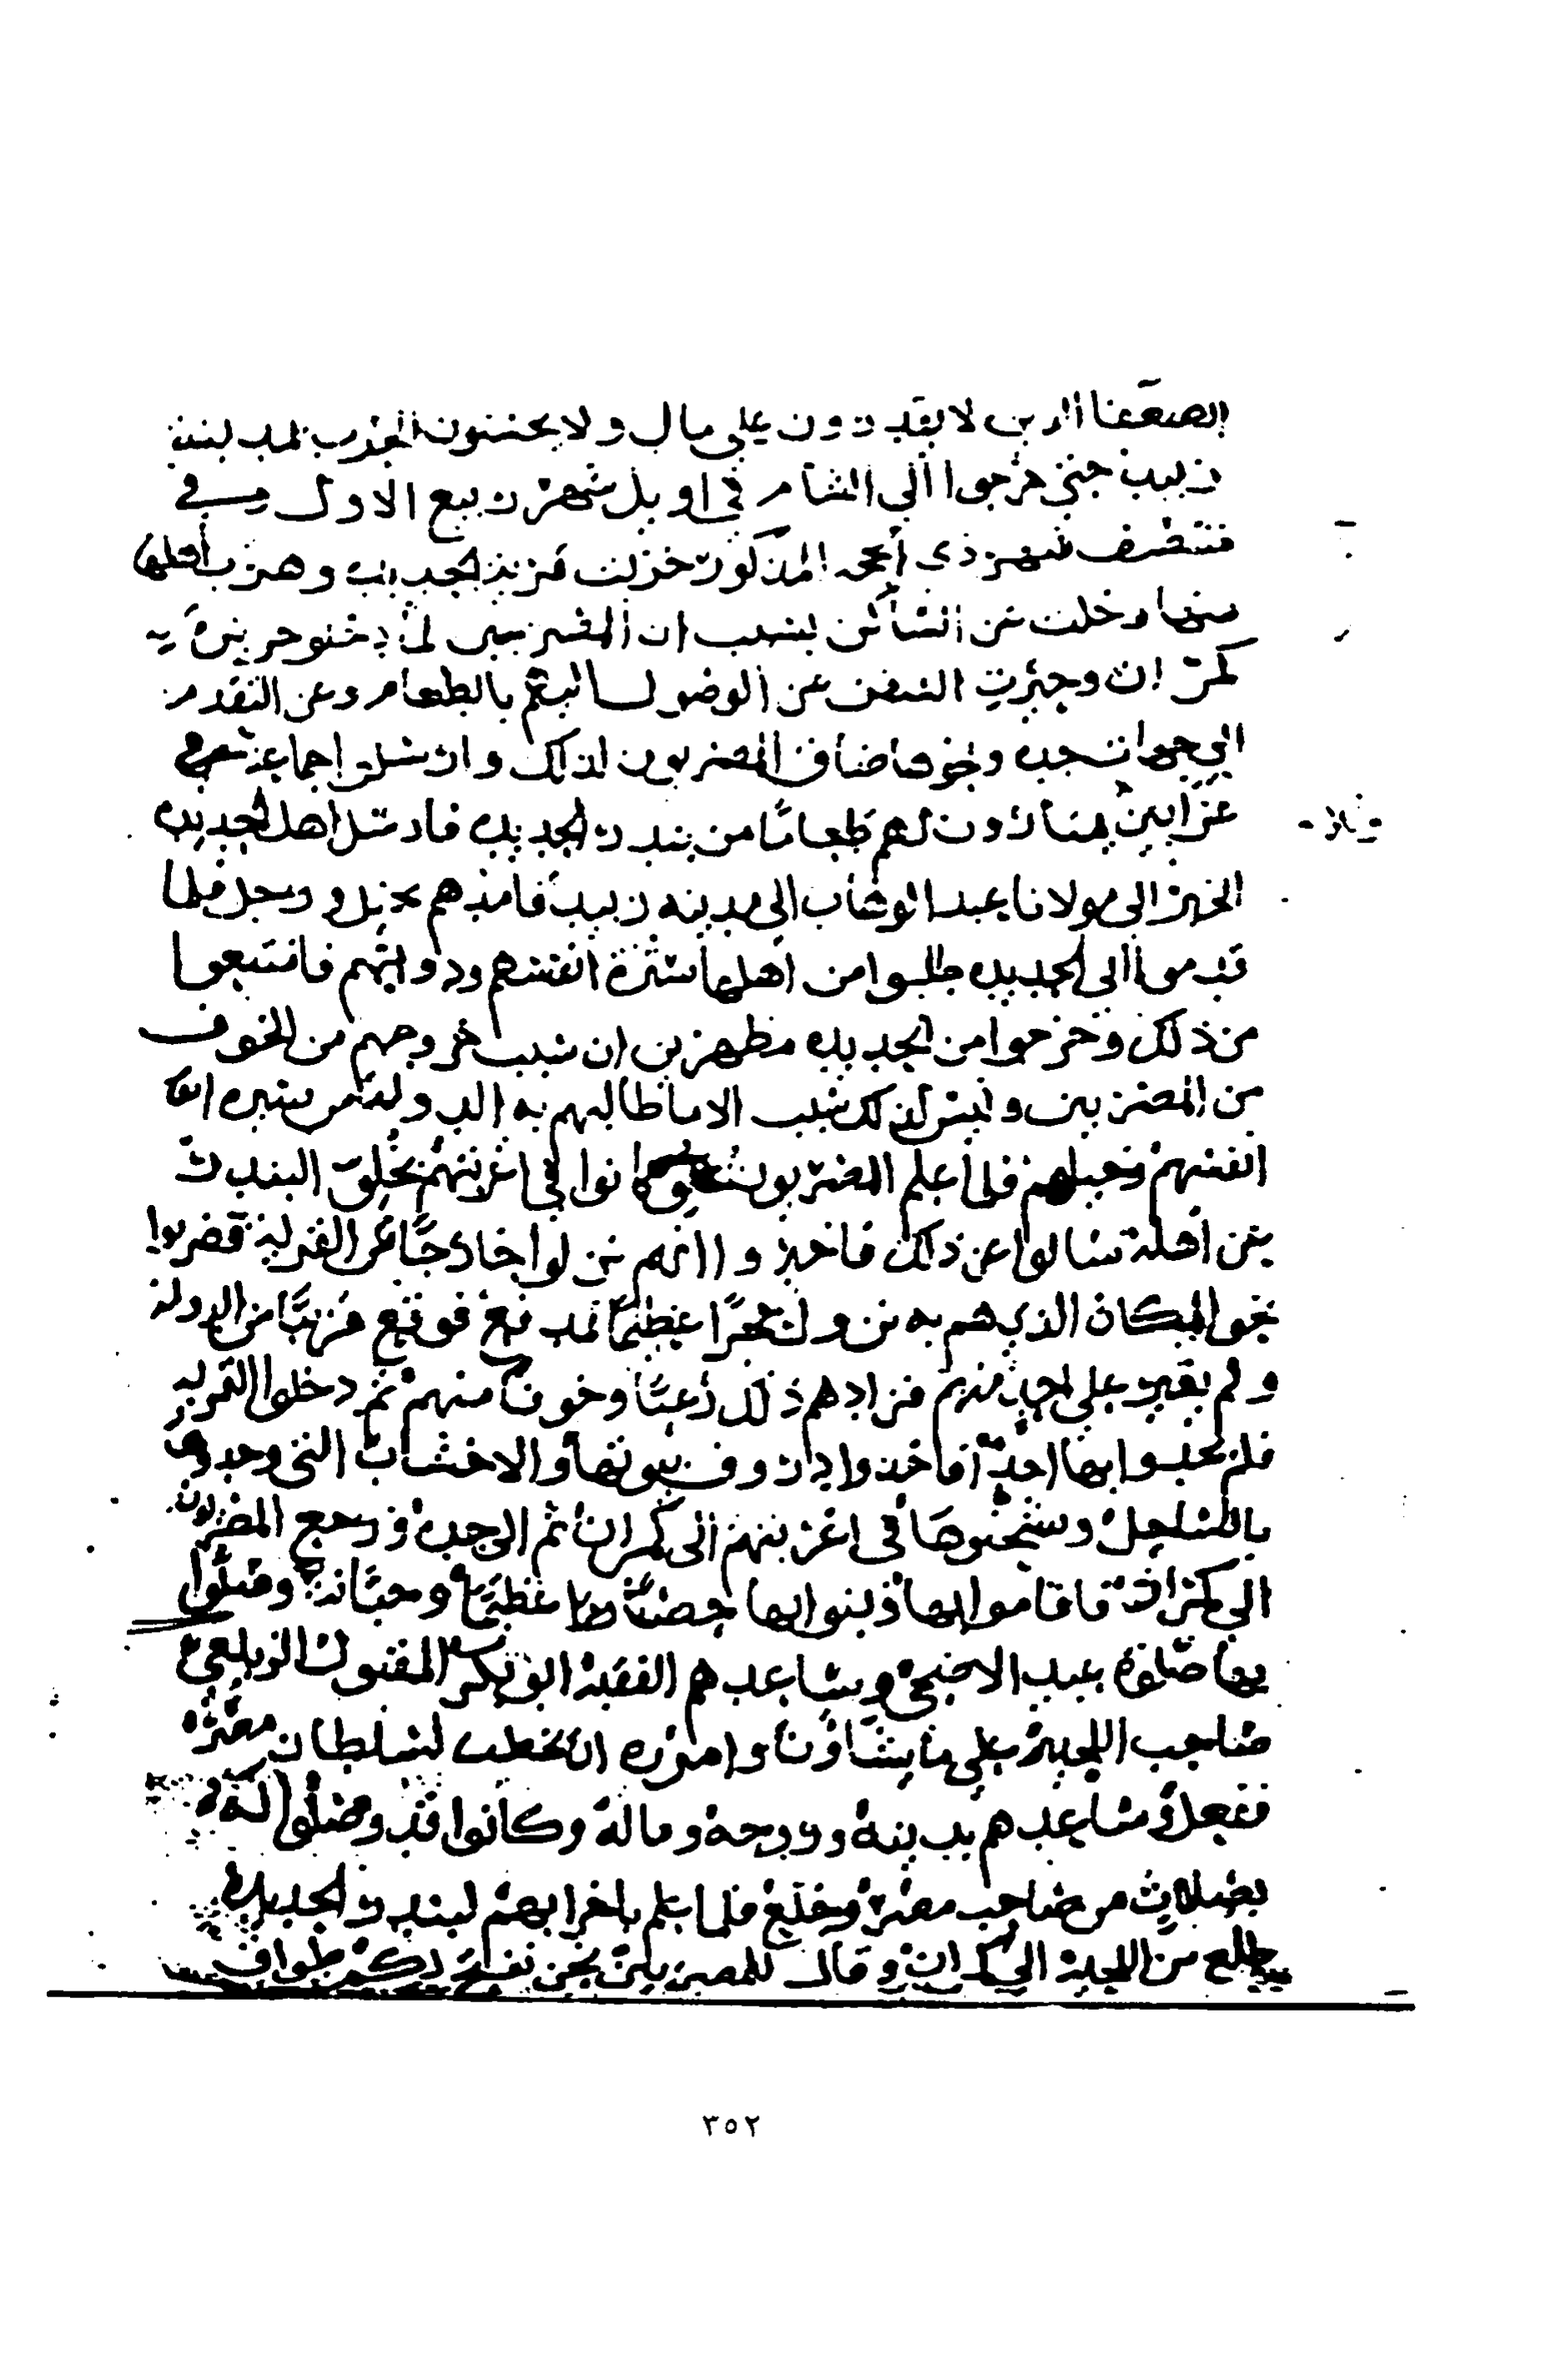 الضعفا الذين لا يقدرون على مال ولا يحسنون الحرب بمدينة
زبيد حتى خرجوا الى الشام في اويل شهر ربيع الاول وفي
منتصف شهر ذي الحجه المذكور خربت قرية الحديده وهرب اهلها
منها وخلت عن الساكن بسبب ان المصريين لما دخلوا جزيرة
كمران وحيرت السفن عن الوصول اليهم بالطعام وعن التقدم
الى جهات جده ونحوها ضاق المصريون لذلك وارسلوا جماعة في
غرابين يمتارون لهم طعاما من بندر الحديده فارسل اهل الحديده
الخبر الى مولانا عبد الوهاب الى مدينه زبيد فامدهم بخيل ورجل فلما
قدموا الى الحديده طلبوا من اهلها مئرة انفسهم ودوابهم فامتنعوا
من ذلك وخرجوا من الحديده مظهرين ان سبب خروجهم من الخوف
من المصريين وليس لذلك سبب الا ما طالبهم به الدولة من ميره
انفسهم وخيلهم فلما علم المصريون وكانوا في اغربتهم بخلو البندر
عن اهله سالوا عن ذلك فاخبروا انهم نزلوا خارجا عن القرية فضربوا
نحو المكان الذي هم به نزول حجرا عظيما بمدفع فوقع قريبا من الدولة
ولم يقع على احد منهم فزادهم ذلك رعبا وخوفا منهم ثم دخلوا القريه
فلم يجدوا بها احدا فاخذوا دروف بيوتها والاخشاب التي وجدوها
بالساحل وشحنوها في اغربتهم الى كمران ثم الى جده ورجع المصريون
الى كمران فاقاموا بها وبنوا بها حصنا عظيما وجبانة وصلوا
بها صلوة عيد الاضحى وساعدهم الفقيه ابو بكر المقبول الزيلعي
صاحب اللحية على ما يشاؤن وامروه ان يخطب لسلطان مصر
ففعل وساعدهم بدينه وروحه وماله وكانوا قد وصلوا له
بصلات من صاحب مصر وخلع فلما علم باخرابهم لبندر الحديدة
طلع من اللحية الى كمران وقال للمصريين نحن
٣٥٢